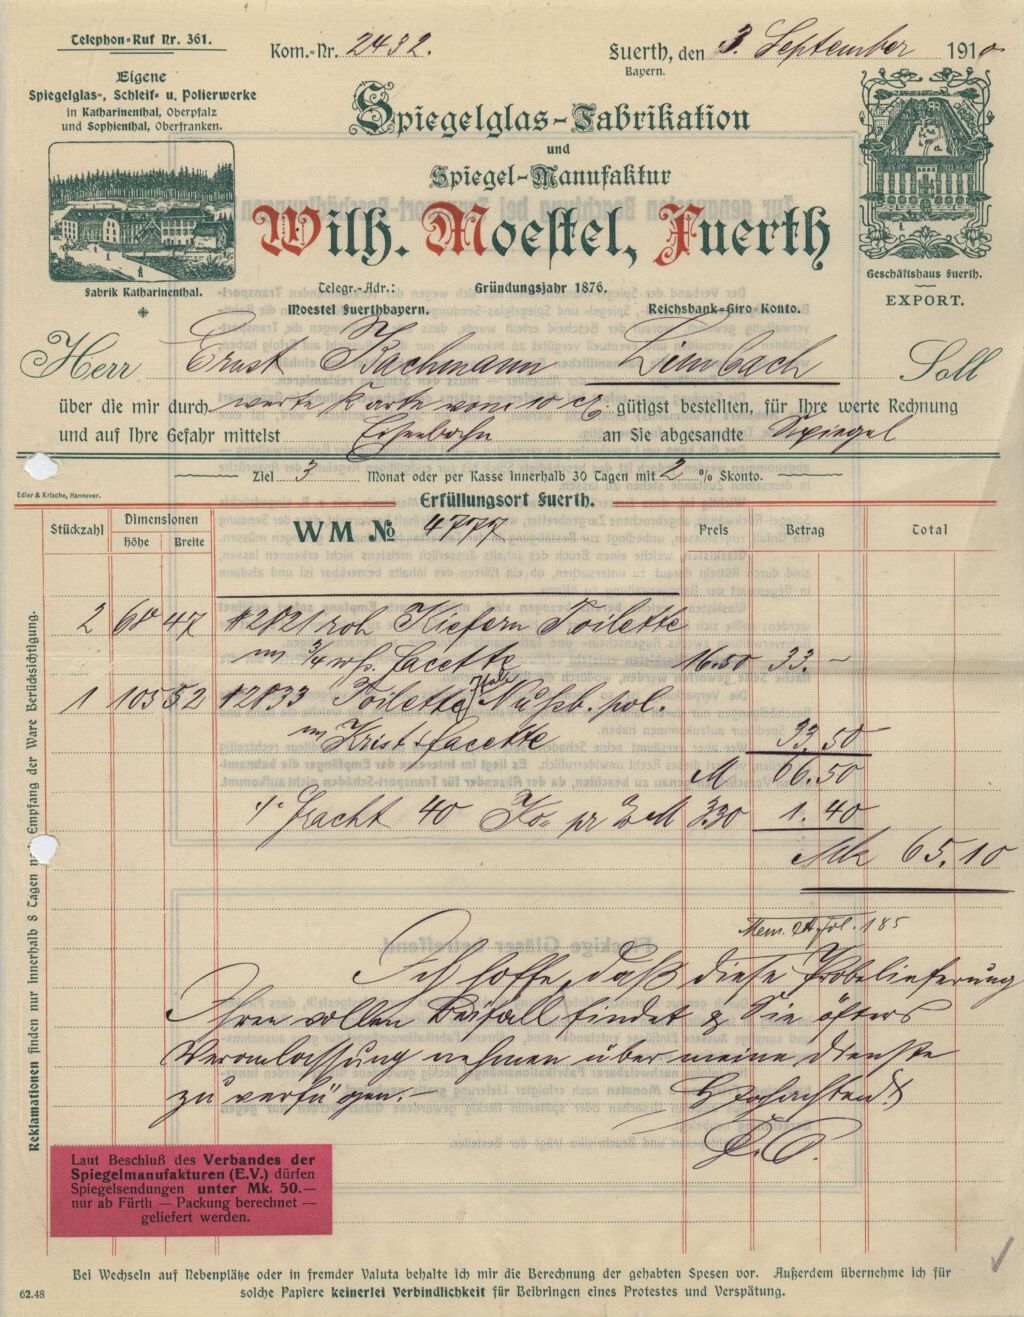 Telephon-Ruf Nr. 361.
Kom.-Nr. 2432.
Fuerth, den 3. September 1910
Bayern.
Eigene
Spiegelglas-, Schleif- u. Polierwerke
in Katharinenthal, Oberpfalz
und Sophienthal, Oberfranken.
Spiegelglas-Fabrikation
und
Spiegel-Manufaktur
Wilh. Moestel, Fuerth
Fabrik Katharinenthal.
Geschäftshaus Fuerth.
EXPORT.
Telegr.-Adr.:
Moestel Fuerthbayern.
Gründungsjahr 1876.
Reichsbank-Giro-Konto.
Herr Ernst Bachmann Limbach Soll
über die mir durch werte Karte vom 10 gütigst bestellten, für Ihre werte Rechnung
und auf Ihre Gefahr mittelst Eisenbahn an Sie abgesandte Spiegel
Ziel 3 Monat oder per Kasse innerhalb 30 Tagen mit 2 % Skonto.
Edler & Krische, Hannover.
Erfüllungsort Fuerth.
Stückzahl Dimensionen Höhe Breite WM No Preis Betrag Total
2 68 47 # 2021 roh Kiefern Toilette
m 3/4 facette 16.50 33.-
1 105 52 # 2033 Toilette Nußb. pol.
m Krist. facette 33.50
M 66.50
Fracht 40 Ko pr % M 3.30 1.40
Mk 65.10
Mem. A fol. 185
Ich hoffe, daß diese Probelieferung
Ihren vollen Beifall findet & Sie öfters
Veranlassung nehmen über meine Dienste
zu verfügen.-
Hochachtend!
Reklamationen finden nur innerhalb 8 Tagen nach Empfang der Ware Berücksichtigung.
Laut Beschluß des Verbandes der
Spiegelmanufakturen (E.V.) dürfen
Spiegelsendungen unter Mk. 50.—
nur ab Fürth — Packung berechnet —
geliefert werden.
Bei Wechseln auf Nebenplätze oder in fremder Valuta behalte ich mir die Berechnung der gehabten Spesen vor. Außerdem übernehme ich für
solche Papiere keinerlei Verbindlichkeit für Beibringen eines Protestes und Verspätung.
62.48